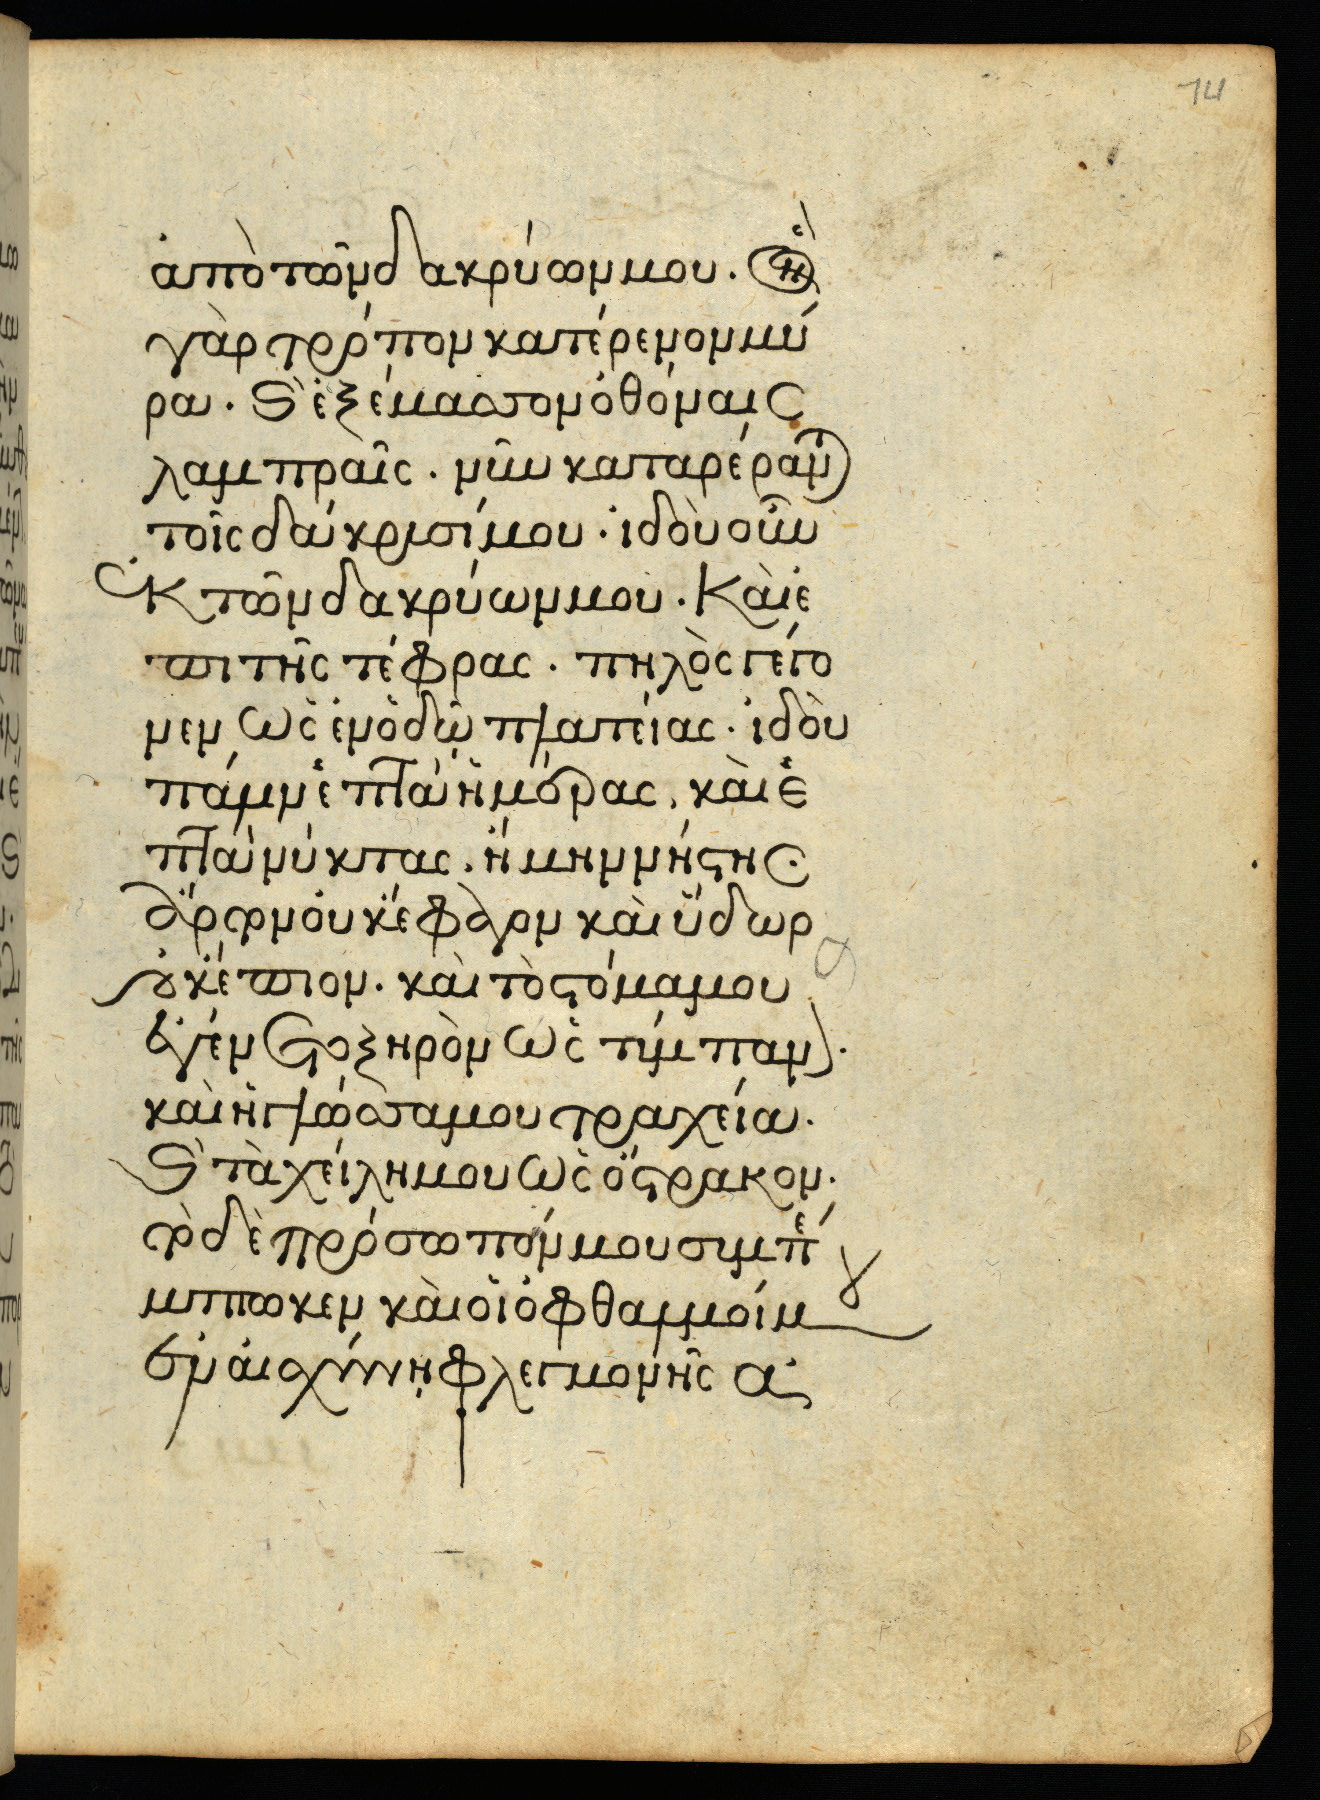 ἀπὸ τῶν δακρύων μου. ὃν
γὰρ τρόπον κατέρενον μύ
ραι. καὶ ἐξέμαστον ὀθόναις
λαμπραῖς. νῦν καταρέραν
τοῖς δάκρισί μου. ἰδοὺ οὖν
ἐκ τῶν δακρύων μου. Καὶ ἐ
πι τῆς τέφρας. πηλὸς γέγο
νεν ὡς ἐν ὁδῷ πλατείας. ἰδοὺ
πάνν ἑπτὰ ἡμέρας, καὶ ἑ
πτὰ νύκτας. ἤμην νήστης.
ἄρτον οὐκ ἔφαγον καὶ ὕδωρ
οὐκ ἔπιον. καὶ τὸ στόμα μου
ἐγένετο ξηρὸν ὡς τύμπαν.
καὶ ἡ γλῶσσα μου τραχεία.
καὶ τὰ χείλη μου ὡς ὄστρακον.
τὸ δὲ πρόσωπόν μου συμπέ
πτωκεν καὶ οἱ ὀφθαλμοί μου
ἐν αἰσχύνῃ φλεγμονῆς ἀ